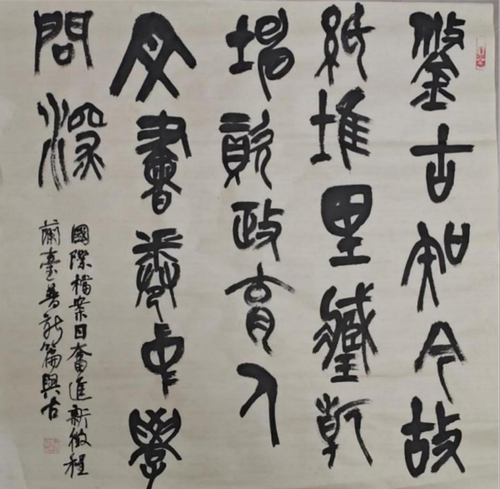 鑒古知今故
紙堆里藏乾
坤資政育人
文書卷中學
問深
國際檔案日奮進新徵程
蘭臺普新篇興古